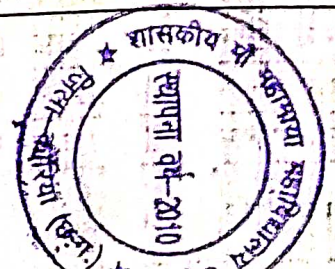 शासकीय माँ महामाया महाविद्यालय
स्थापना वर्ष-2010
जिला-कोरिया (छ.ग.)